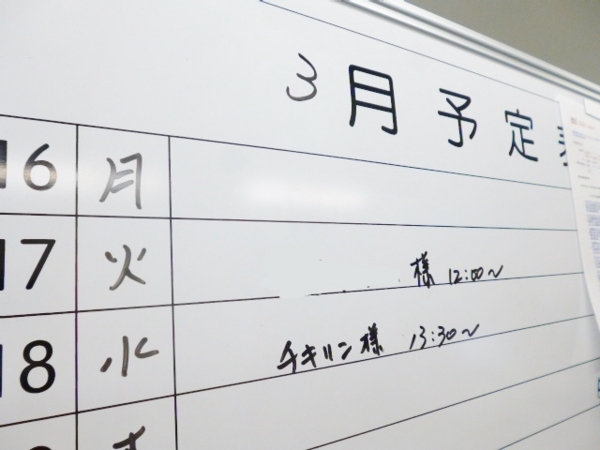 3月予定表
16 月
17 火 様 12:00~
18 水 チキリン様 13:30~